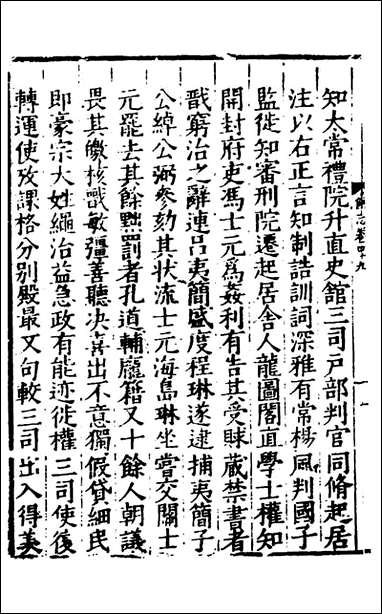 知太常禮院升直史館三司户部判官同脩起居
注以右正言知制誥訓詞深雅有常楊風判國子
監徙知審刑院遷起居舍人龍圖閣直學士權知
開封府吏馮士元爲姦利有告其受賕藏禁書者
戩窮治之辭連吕夷簡盛度程琳遂逮捕夷簡子
公綽公弼參劾其狀流士元海島琳坐嘗交關士
元罷去其餘黜罰者孔道輔龐籍又十餘人朝議
畏其皦核戩敏彊善聽决喜出不意獨假貸細民
即豪宗大姓繩治益急政有能迹徙權三司使復
轉運使攷課格分别殿最又句較三司出入得羡
志卷四十九